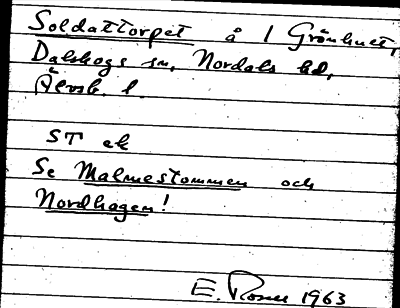 Soldattorpet å 1 Grönhult,
Dalskogs sn, Nordals hd,
Älvsb. l
ST ek
Se Malmestommen och
Nordhagen!
E. 1963